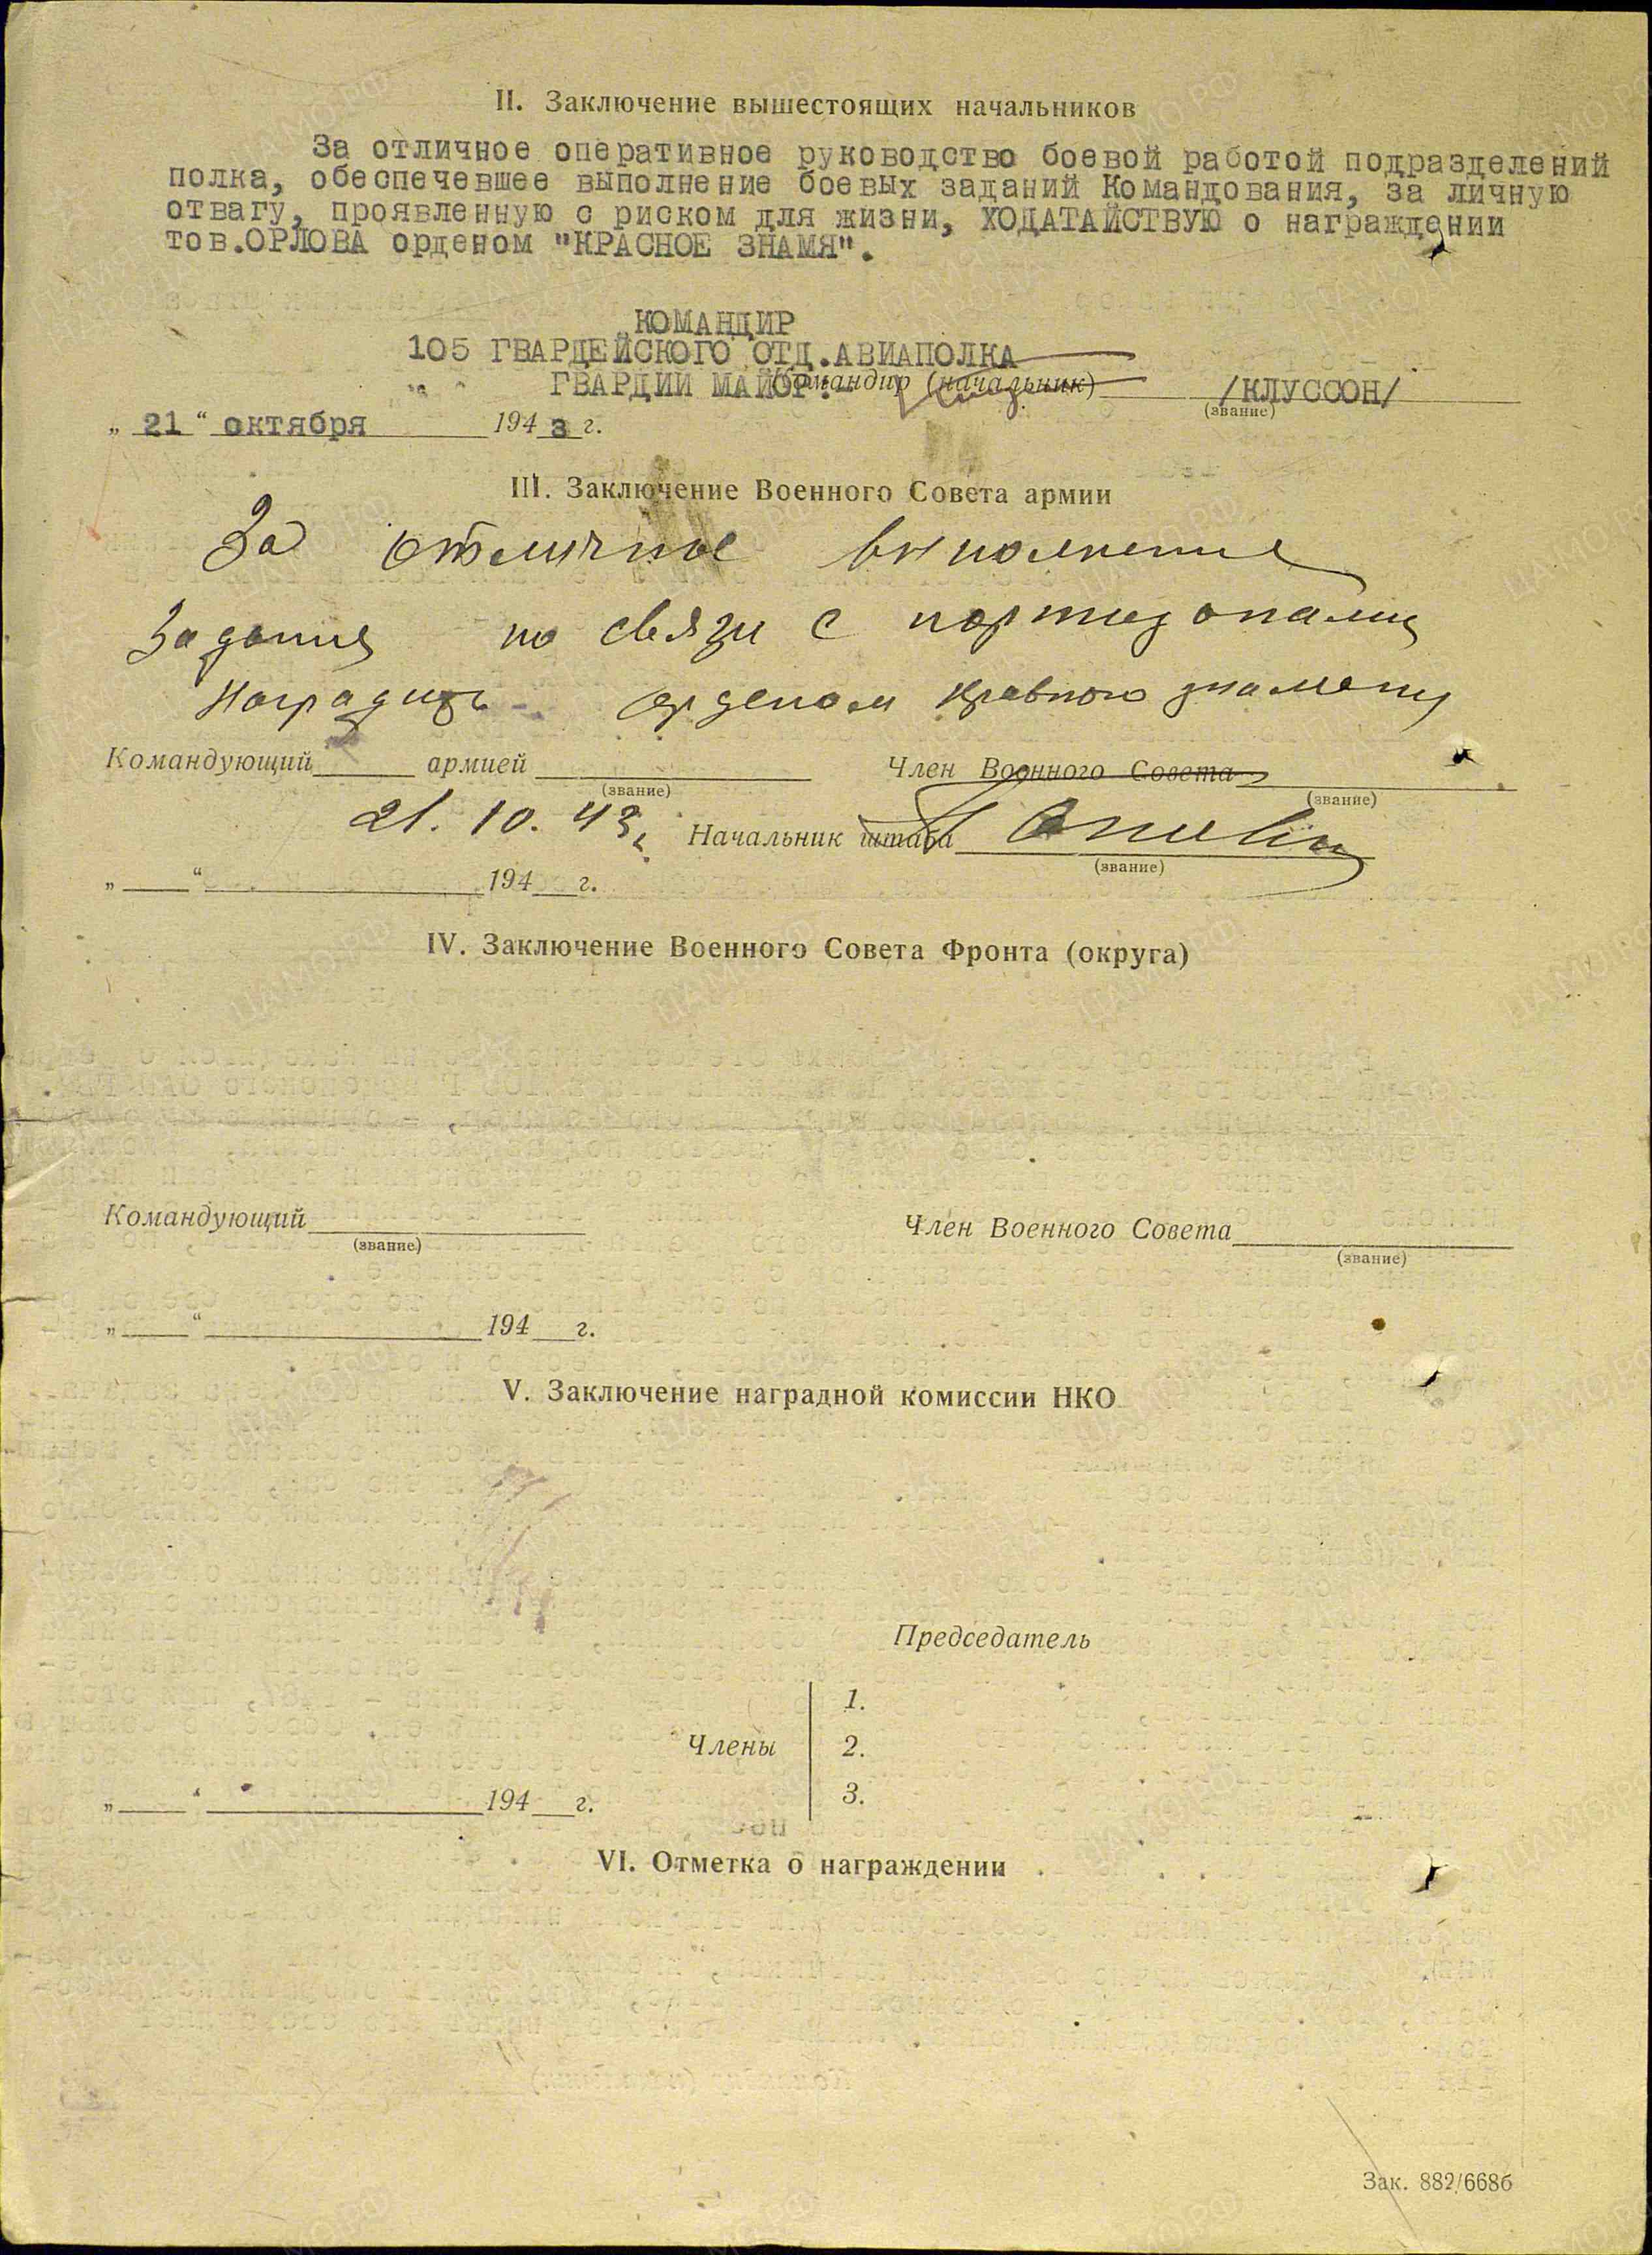 II. Заключение вышестоящих начальников
За отличное оперативное руководство боевой работой подразделений
полка, обеспечевшее выполнение боевых заданий Командования, за личную
отвагу, проявленную с риском для жизни, ХОДАТАЙСТВУЮ о награждении
тов.ОРЛОВА орденом "КРАСНОЕ ЗНАМЯ".
КОМАНДИР
105 ГВАРДЕЙСКОГО ОТД.АВИАПОЛКА
ГВАРДИИ МАЙОР: Командир (начальник) /КЛУССОН/
(звание)
„ 21 “ октября 194 3 г.
III. Заключение Военного Совета армии
За отличное выполнение
задания по связи с партизанами
наградить орденом красного знамени
Командующий армией Член Военного Совета
(звание) (звание)
21. 10. 43г. Начальник штаба
(звание)
„ “ 194 г.
IV. Заключение Военного Совета Фронта (округа)
Командующий Член Военного Совета
(звание) (звание)
„ “ 194 г.
V. Заключение наградной комиссии НКО
Председатель
1.
Члены 2.
3.
„ “ 194 г.
VI. Отметка о награждении
Зак. 882/668б